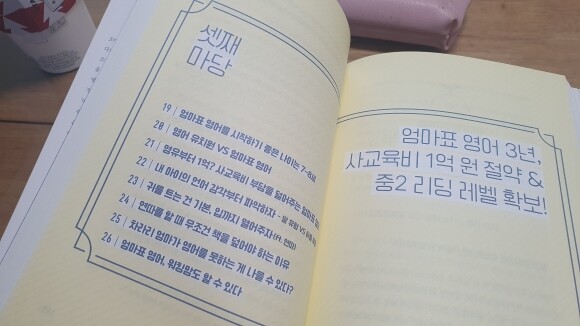 셋째
마당
19 엄마표 영어를 시작하기 좋은 나이는 7~8세
20 영어 유치원 VS 엄마표 영어
21 영유부터 1억? 사교육비 부담을 덜어주는 엄마표
22 내 아이의 언어 감각부터 파악하자 -
23 귀를 트는 건 기본, 입까지 열어주자
24 연따를 할 때 무조건 책을 덮어야 하는 이유
25 차라리 엄마가 영어를 못하는 게 나을 수 있다?
26 엄마표 영어, 워킹맘도 할 수 있다
엄마표 영어 3년,
사교육비 1억 원 절약 &
중2 리딩 레벨 확보!